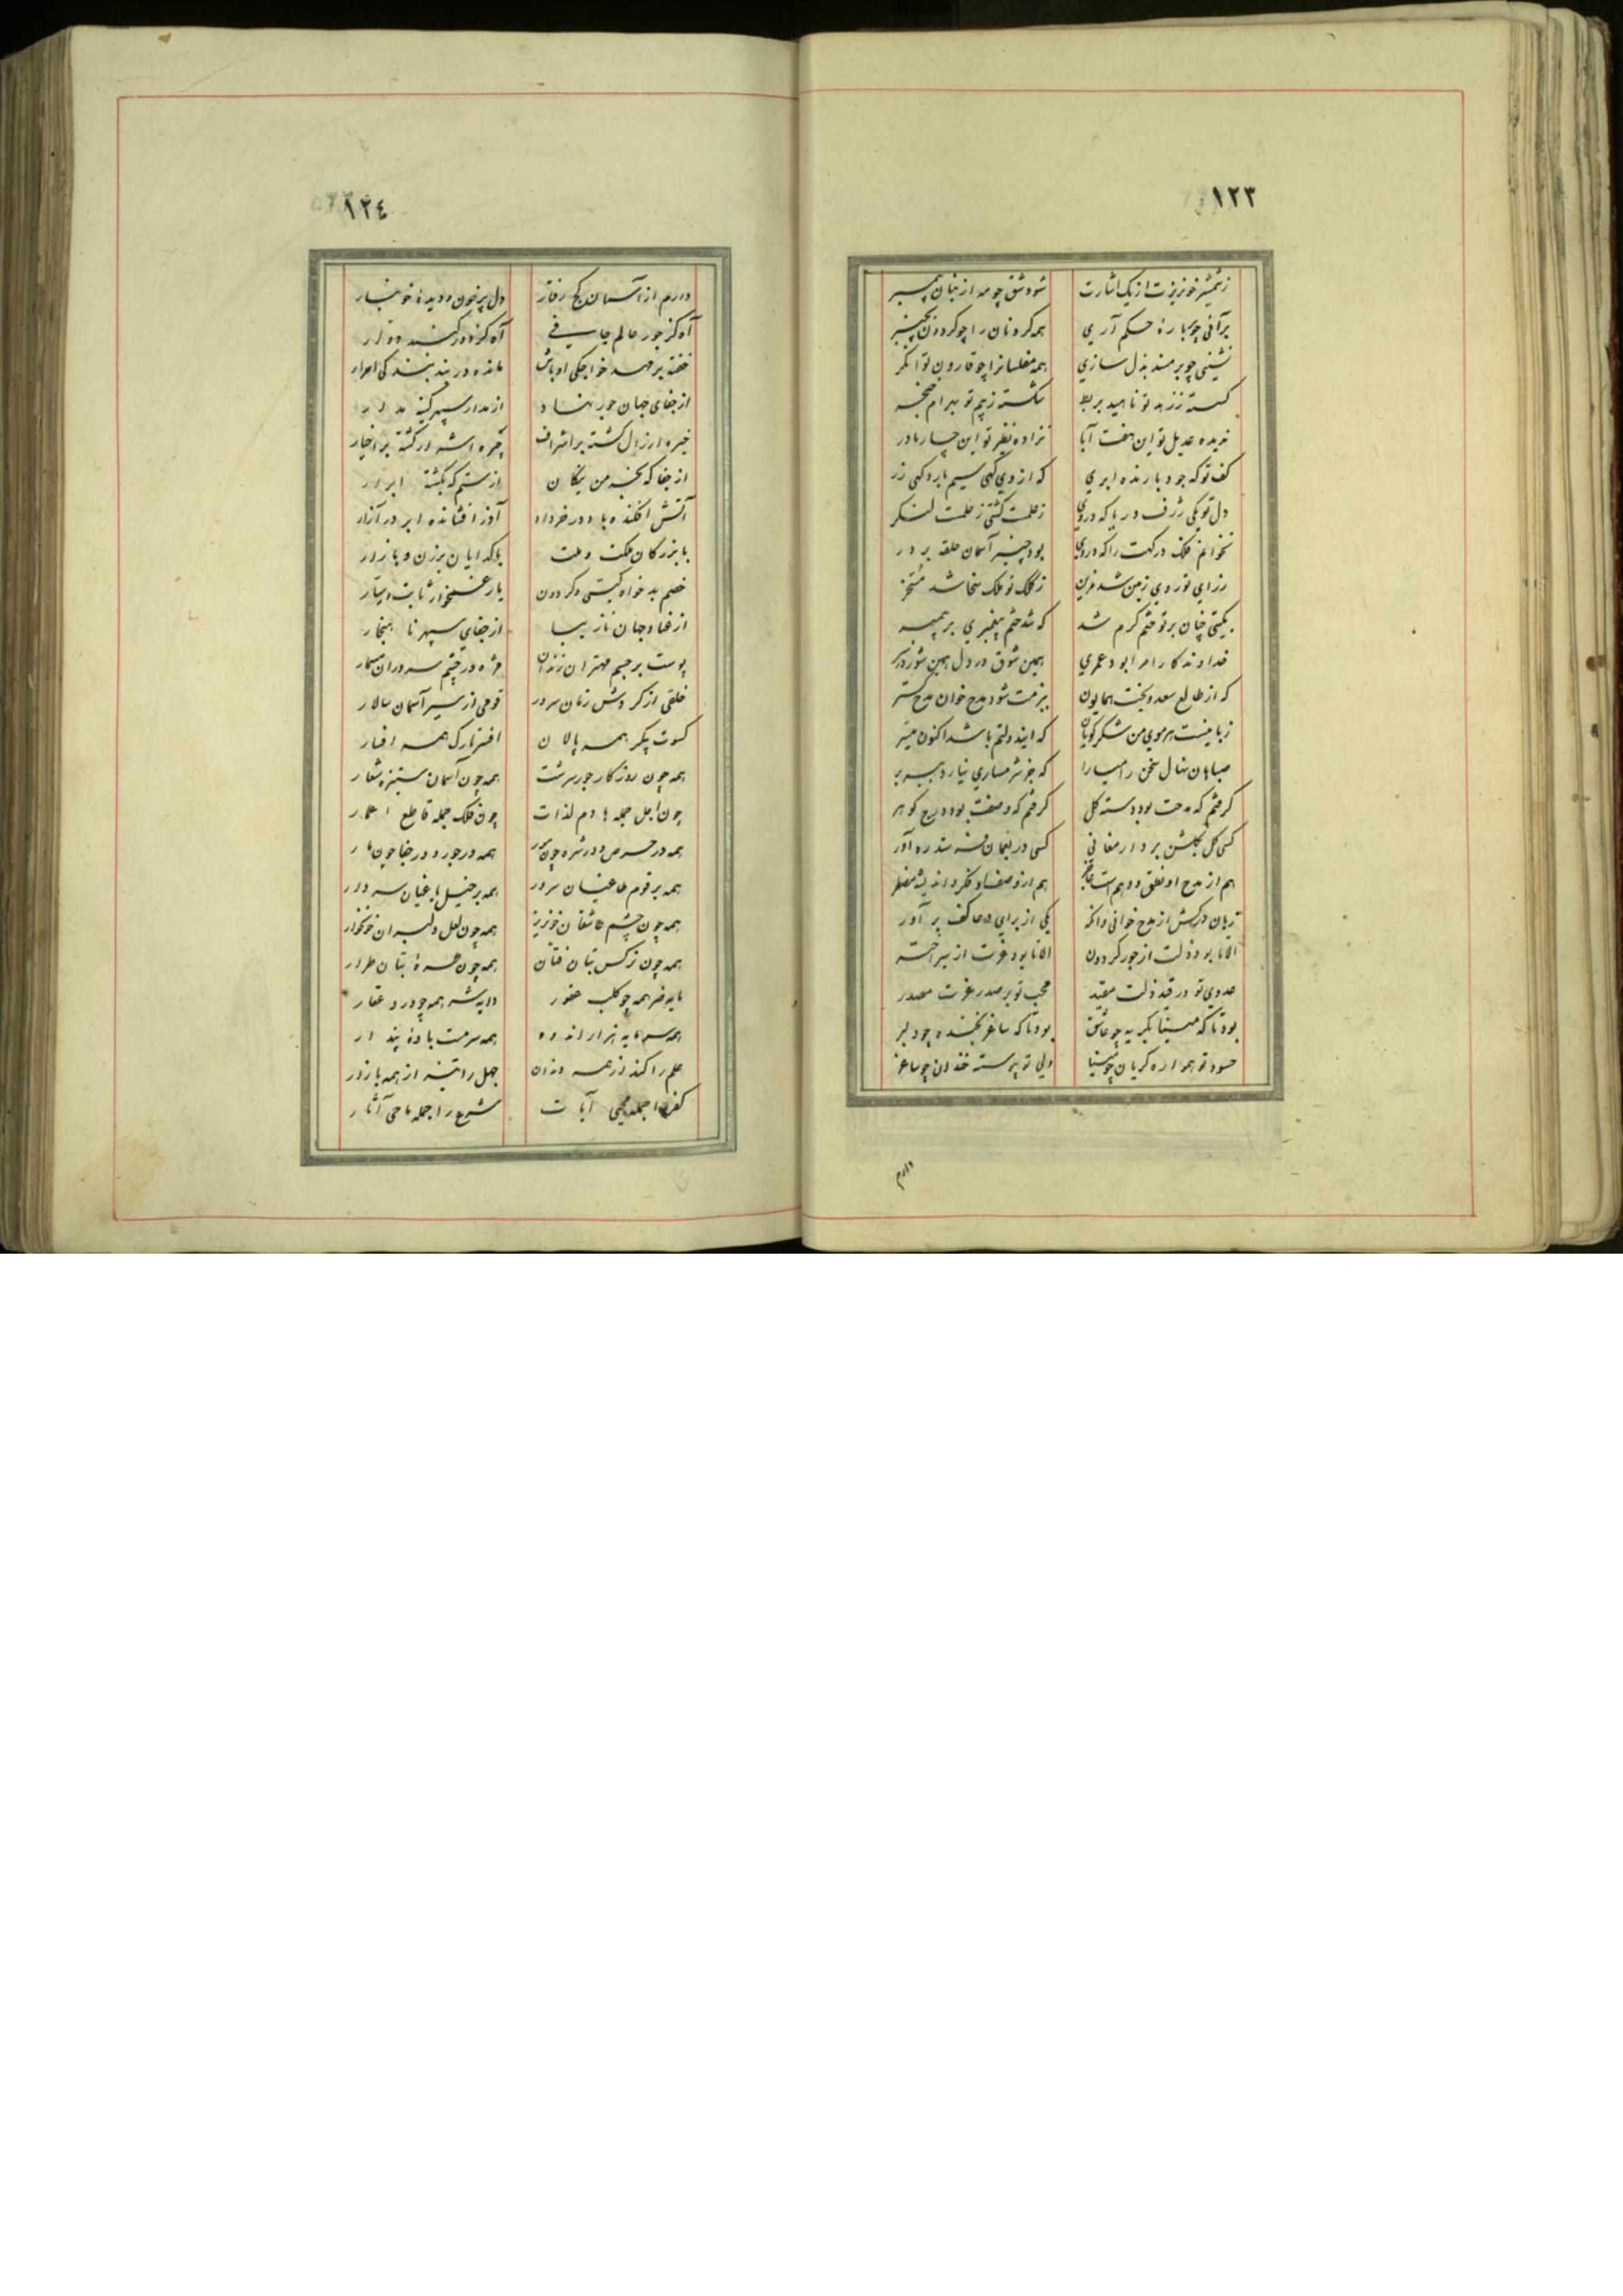 ۱۲۳
ز شمشیر خونریزت از یک اشارت شود شق چو مه از بنان پیمبر
برآنی چو بر باره حکم آری همه گردنان را چو گردون بچنبر
نشینی چو بر مسند بذل سازی همه مفلسانرا چو قارون توانگر
گسسته ز زیر تو ناهید بربط شکسته ز بیم تو بهرام خنجر
ندیده عدیل تو این هفت آبا نزاده نظیر تو این چار مادر
کف تو که جود بارنده ابری که از وی گهی سیم بارد گهی زر
دل تو یکی ژرف دریا که در وی ز حلمت کشتی ز حلمت لنگر
نخوانم فلک درگهت را که در وی بود چنبر آسمان حلقه بر در
ز رای تو روی زمین شد مزین ز کلک تو ملک سخا شد مسخر
بگیتی چنان بر تو ختم کرم شد که شد ختم پیغمبری بر پیمبر
خداوندگارا مرا بود عمری همین شوق در دل همین شور در سر
که از طالع سعد و بخت همایون ببزمت شود مدح خوان مدح گستر
زبانیست هر موی من شکر گویان که این دولتم باشد اکنون میسر
صباهان نهال سخن را میارا که جز شرمساری نیارد ببر بر
گرفتم که مدحت بود دسته گل گرفتم که وصفت بود درج گوهر
کسی گل بگلشن برد ارمغانی کسی در بعمان فرستد ره آور
هم از مدح او نطق و وهم است عاجز هم از وصف او فکر و اندیشه مضطر
زبان درکش از مدح خوانی وانگه یکی از برای دعا کف برآور
الا تا بود ذلت از جور گردون الا تا بود عزت از سیر اختر
عدوی تو در قید ذلت مقید محب تو بر صدر عزت مصدر
بود تا که مینا بگریه چو عاشق بود تا که ساغر بخنده چو دلبر
حسود تو همواره گریان چو مینا ولی تو پیوسته خندان چو ساغر
دارم
۱۲٤
دارم از آسمان کج رفتار دل پر خون و دیده خونبار
آه کز جور عالم جافی آه کز دور گنبد دوار
خفته بر مهد خواجگی اوباش مانده در بند بندگی احرار
از جفای جهان جور نهاد از مدار سپهر کینه مدار
خیره ارذال گشته بر اشراف چیره اشرار گشته بر اخیار
از جفا که نخبه من نیکان از ستم که نکشته ابرار
آتش افکنده باد در خرداد آذر افشانده ابر در آزار
با بزرگان ملت و ملت با گدایان برزن و بازار
خصم بدخواه گیتی و گردون یار غمخوار ثابت و سیار
از عناد جهان نازیبا از جفای سپهر ناهنجار
پوست بر جسم مهتران زندان مژه در چشم سروران مسمار
خلقی از گردش زمان سرور قومی از سیر آسمان سالار
کسوت پیکر همه پالان افسر تارک همه افسار
همه چون روزگار جور سرشت همه چون آسمان ستیزه شعار
چون اجل جمله هادم لذات چون فلک جمله قاطع اعمار
همه در حرص و در شره چون مور همه در جور و در جفا چون مار
همه بر قوم طاغیان سرور همه بر خیل یاغیان سردار
همه چون چشم عاشقان خونریز همه چون لعل دلبران خونخوار
همه چون نرگس بتان فتان همه چون طره بتان طرار
مایه شر همه چو کلب عقور
همه سرمایه هزار اندوه همه سرمست باده پندار
علم را کند از همه دندان جهل را تیز از همه بازار
کفر را جمله محیی آیات شرع را جمله ماحی آثار